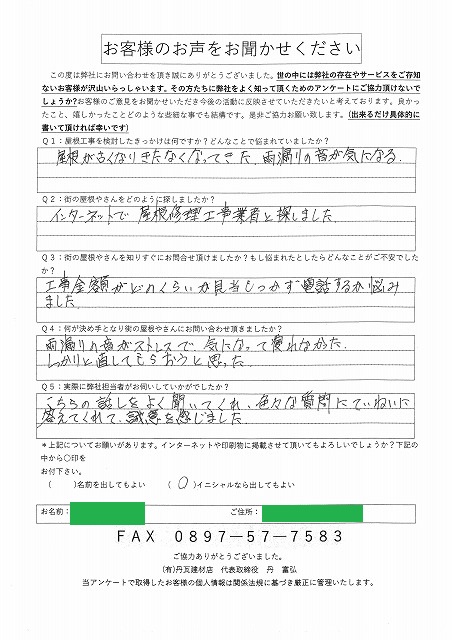 お客様のお声をお聞かせください
この度は弊社にお問い合わせを頂き誠にありがとうございました。世の中には弊社の存在やサービスをご存知
ないお客様が沢山いらっしゃいます。その方たちに弊社をよく知って頂くためのアンケートにご協力頂けないで
しょうか?お客様のご意見をお聞かせいただき今後の活動に反映させていただきたいと考えております。良かっ
たこと、嬉しかったことどのような些細な事でも結構です。是非ご協力お願い致します。(出来るだけ具体的に
書いて頂ければ幸いです)
Q1:屋根工事を検討したきっかけは何ですか?どんなことで悩まれていましたか?
屋根が古くなりきたなくなってきた、雨漏りの音が気になる.
Q2:街の屋根やさんをどのように探しましたか?
インターネットで 屋根修理工事業者と探しました.
Q3:街の屋根やさんを知りすぐにお問合せ頂けましたか?もし悩まれたとしたらどんなことがご不安でした
か?
工事金額がどれくらいか見当もつかず電話するか悩み
ました.
Q4:何が決め手となり街の屋根やさんにお問い合わせ頂けましたか?
雨漏りの音がストレスで 気になって寝れなかった.
しっかりと直してもらおうと思った.
Q5:実際に弊社担当者がお伺いしていかがでしたか?
こちらの話しをよく聞いてくれ、色々な質問にていねいに
答えてくれて、誠意を感じました.
*上記についてお願いがあります。インターネットや印刷物に掲載させて頂いてもよろしいでしょうか?下記の
中から〇印を
お付下さい。
( )名前を出してもよい (O)イニシャルなら出してもよい
お名前: ご住所:
FAX 0897-57-7583
ご協力ありがとうございました。
(有)丹瓦建材店 代表取締役 丹 富弘
当アンケートで取得したお客様の個人情報は関係法規に基づき厳正に管理いたします。